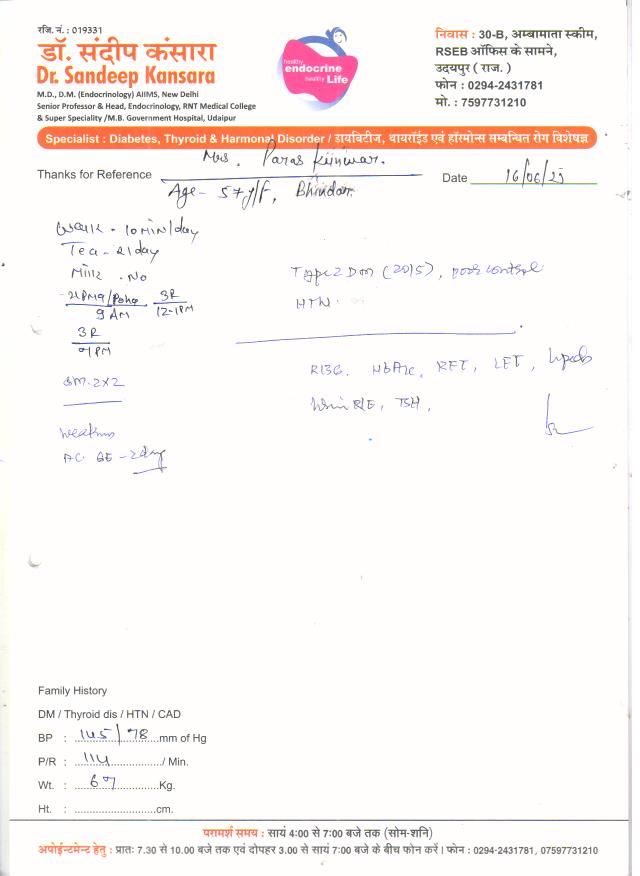 रजि. नं. : 019331
डॉ. संदीप कंसारा
Dr. Sandeep Kansara
M.D., D.M. (Endocrinology) AIIMS, New Delhi
Senior Professor & Head, Endocrinology, RNT Medical College
& Super Speciality /M.B. Government Hospital, Udaipur
healthy
endocrine
healthy Life
निवास : 30-B, अम्बामाता स्कीम,
RSEB ऑफिस के सामने,
उदयपुर ( राज. )
फोन : 0294-2431781
मो. : 7597731210
Specialist : Diabetes, Thyroid & Harmonal Disorder / डायबिटीज, थायरॉईड एवं हॉरमोन्स सम्बन्धित रोग विशेषज्ञ
Thanks for Reference Mrs. Paras Kunwar.
Date 16/06/25
Age - 57 y/f, Bhindar.
Walk - 10 min/day
Tea - 2/day
Milk - No
Poha 3R
9 AM 12-1PM
3R
9 PM
Type 2 DM (2015), poor control
HTN
RBG, HbA1c, RFT, LFT, Lipids
Urine R/E, TSH,
GM. 2x2
Weakness
AC. GE - 2 day
Family History
DM / Thyroid dis / HTN / CAD
BP : 145/78 mm of Hg
P/R : 114 / Min.
Wt. : 67 Kg.
Ht. : ........................... cm.
परामर्श समय : सायं 4:00 से 7:00 बजे तक (सोम-शनि)
अपोईन्टमेन्ट हेतु : प्रातः 7.30 से 10.00 बजे तक एवं दोपहर 3.00 से सायं 7:00 बजे के बीच फोन करें । फोन : 0294-2431781, 07597731210